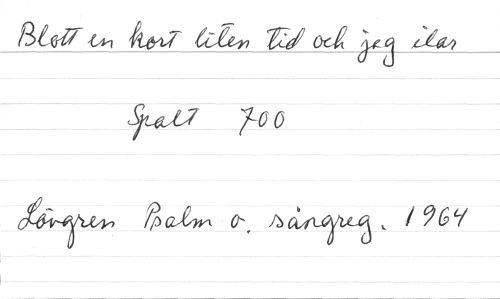 Blott en kort liten tid och jag ilar
Spalt 700
Lövgren Psalm o. sångreg. 1964